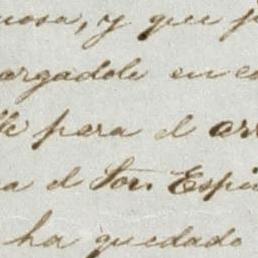 uosa, y que p
argadole en co
lle para el arr
a el Sor. Espi
ha quedado